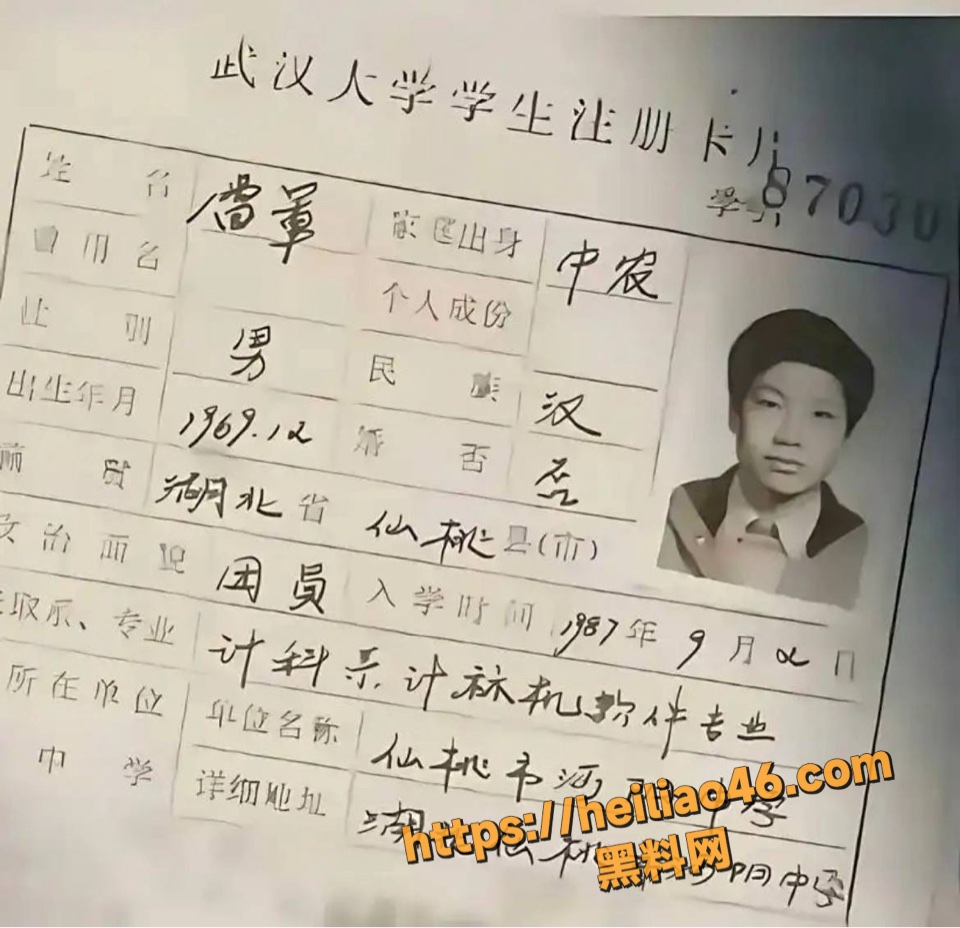 武汉大学学生注册卡片
学号 87030
姓名 雷軍 家庭出身 中农
曾用名 个人成份
性别 男 民族 汉
出生年月 1969.12 婚否 否
湖北省 仙桃县(市)
政治面貌 团员 入学时间 1987年9月2日
录取系、专业 计科系计标机软件专业
所在单位 单位名称 仙桃市沔中学
中学 详细地址 湖仙桃阳中学
https://heiliao46.com
黑料网